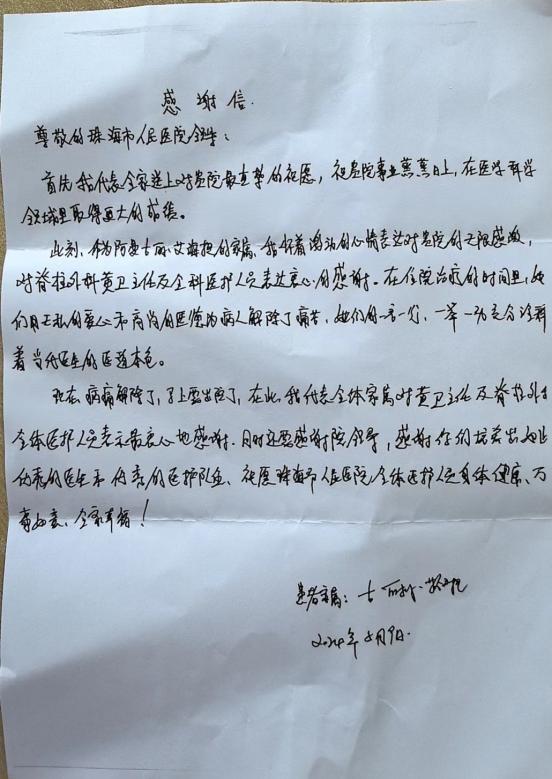 感谢信
尊敬的珠海市人民医院领导:
首先我代表全家送上对贵院最真挚的祝愿,祝贵院事业蒸蒸日上,在医学科学
领域里取得更大的成绩。
此刻,作为阿曼古丽·艾海提的家属,我怀着激动的心情表达对贵院的无限感激,
对脊柱外科黄卫主任及全科医护人员表达衷心的感谢。在住院治疗的时间里,她
们用无私的爱心和高尚的医德为病人解除了痛苦,她们的一言一行,一举一动充分诠释
着当代医生的医道本色。
现在病痛解除了,马上要出院了,在此,我代表全体家属对黄卫主任及脊柱外科
全体医护人员表示最衷心地感谢.同时还要感谢院领导,感谢你们培养出如此
优秀的医生和优秀的医护队伍、祝愿珠海市人民医院全体医护人员身体健康、万
事如意、全家幸福!
患者家属:
2024年8月9日.